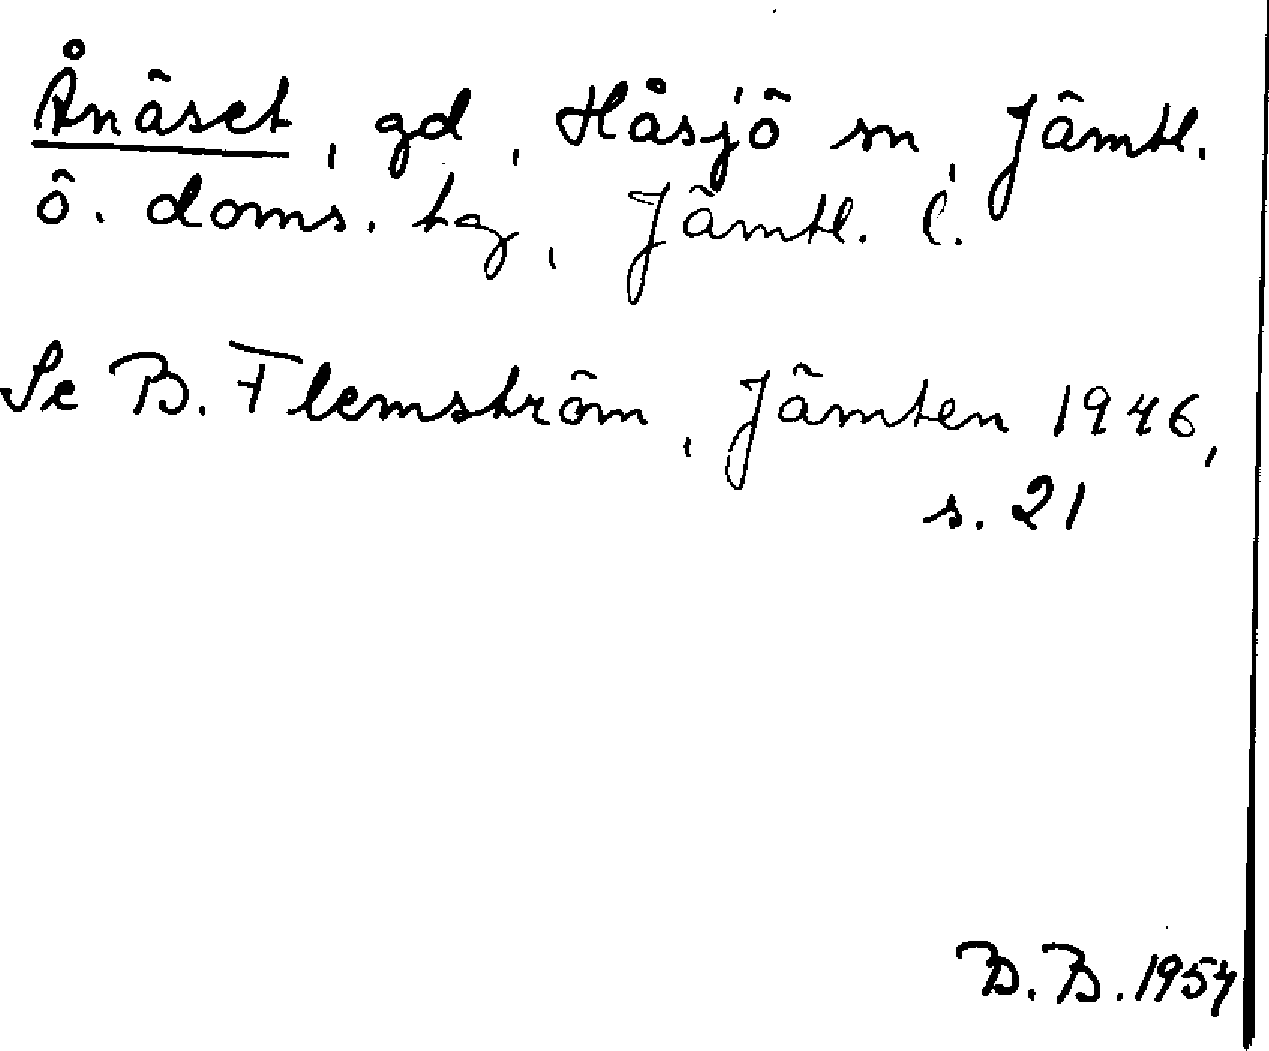 Ånäset, gd, Håsjö sn, Jämtl.
ö. doms. tg, Jämtl. l.
Se B. Flemström, Jämten 1946,
s. 21
B. B. 1954